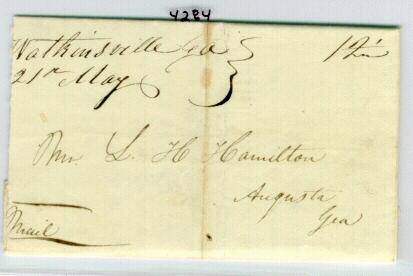 4284
Watkinsville Ga
21st May
12½
Mr. L. H Hamilton
Augusta
Geo
Mail